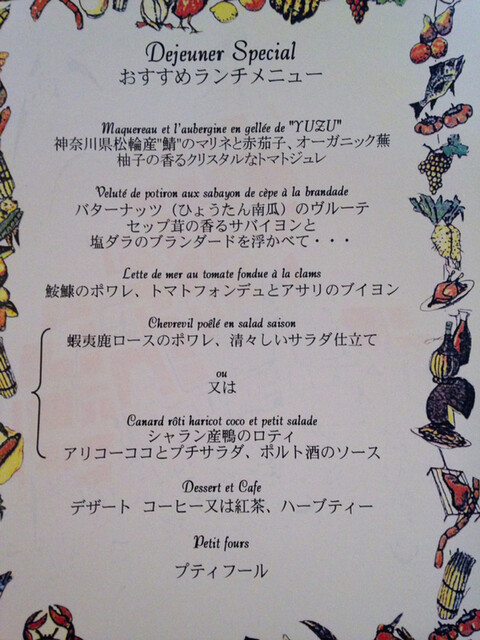 Dejeuner Special
おすすめランチメニュー
Maquereau et l'aubergine en gellée de "YUZU"
神奈川県松輪産"鯖"のマリネと赤茄子、オーガニック蕪
柚子の香るクリスタルなトマトジュレ
Veluté de potiron aux sabayon de cèpe à la brandade
バターナッツ（ひょうたん南瓜）のヴルーテ
セップ茸の香るサバイヨンと
塩ダラのブランダードを浮かべて・・・
Lette de mer au tomate fondue à la clams
鮟鱇のポワレ、トマトフォンデュとアサリのブイヨン
Chevrevil poêlé en salad saison
蝦夷鹿ロースのポワレ、清々しいサラダ仕立て
ou
又は
Canard rôti haricot coco et petit salade
シャラン産鴨のロティ
アリコーココとプチサラダ、ポルト酒のソース
Dessert et Cafe
デザート コーヒー又は紅茶、ハーブティー
Petit fours
プティフール